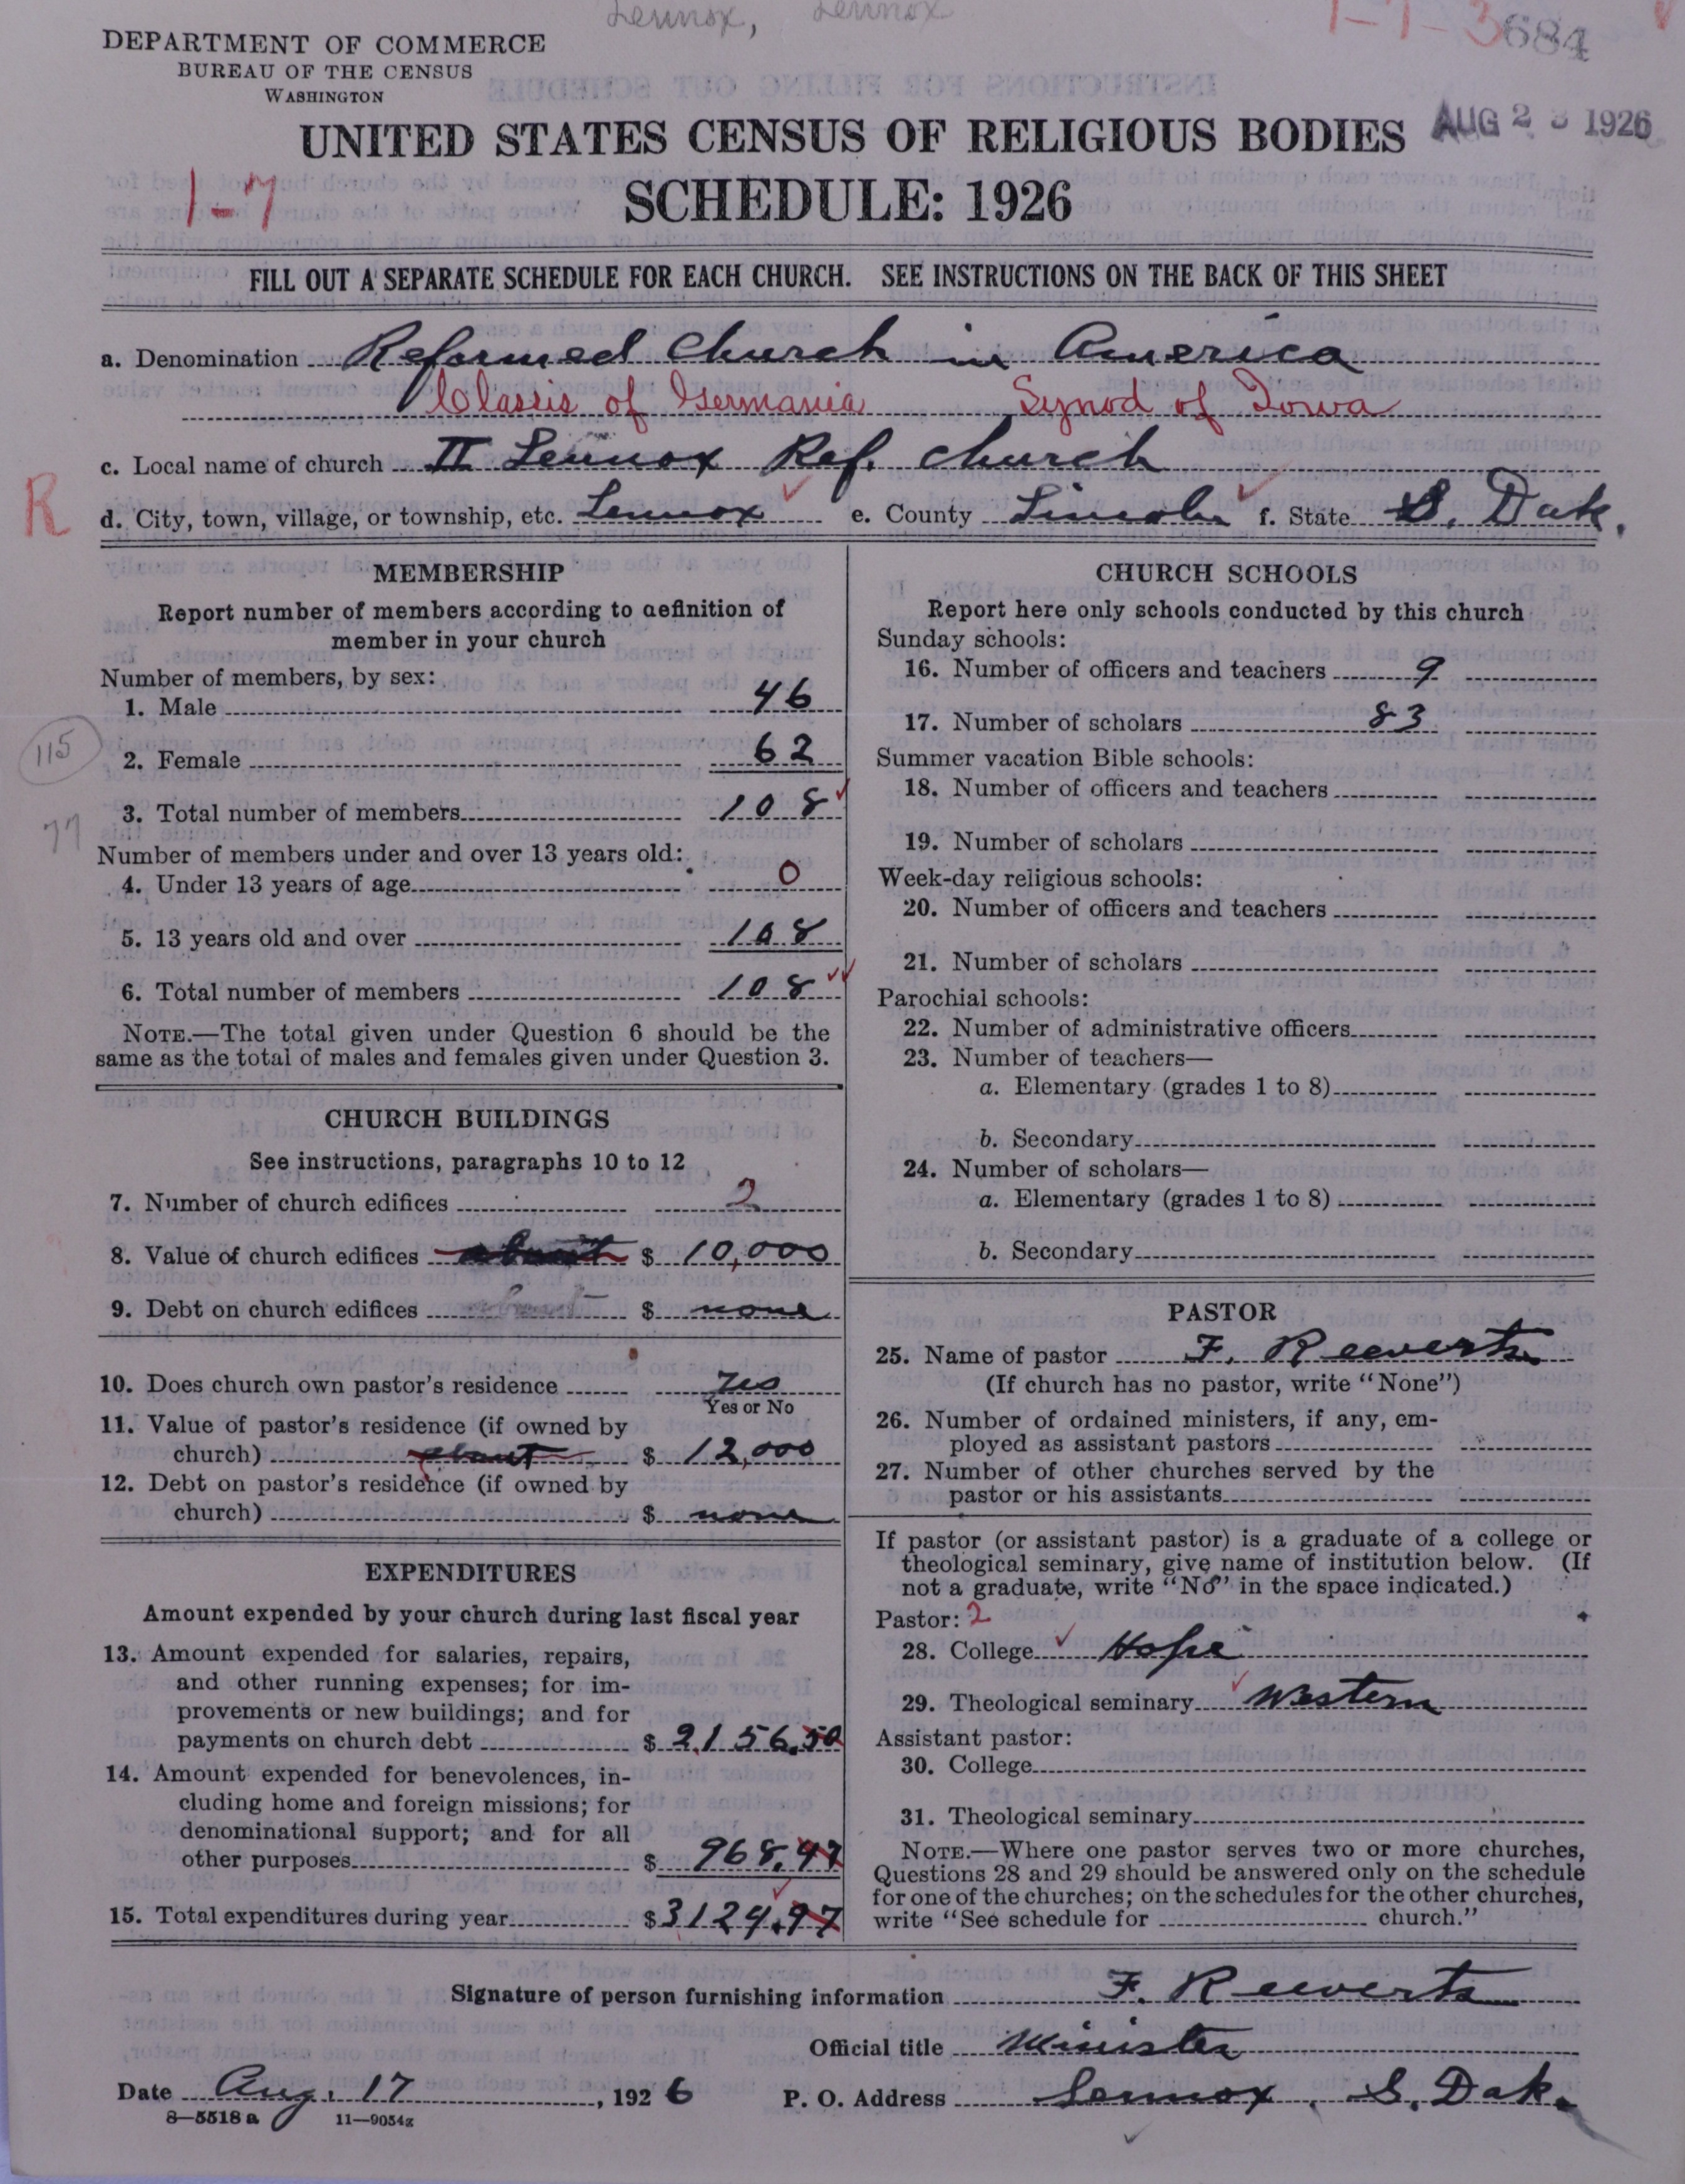 Lennox, Lennox
1-7-3 684
DEPARTMENT OF COMMERCE
BUREAU OF THE CENSUS
WASHINGTON
AUG 23 1926
UNITED STATES CENSUS OF RELIGIOUS BODIES
1-7
SCHEDULE: 1926
FILL OUT A SEPARATE SCHEDULE FOR EACH CHURCH. SEE INSTRUCTIONS ON THE BACK OF THIS SHEET
a. Denomination Reformed Church in America
Classis of Germania Synod of Iowa
c. Local name of church II Lennox Ref. Church
R
d. City, town, village, or township, etc. Lennox e. County Lincoln f. State S. Dak.
MEMBERSHIP
Report number of members according to definition of
member in your church
Number of members, by sex:
1. Male 46
115
2. Female 62
3. Total number of members 108
77
Number of members under and over 13 years old:
4. Under 13 years of age 0
5. 13 years old and over 108
6. Total number of members 108
NOTE.—The total given under Question 6 should be the
same as the total of males and females given under Question 3.
CHURCH BUILDINGS
See instructions, paragraphs 10 to 12
7. Number of church edifices 2
8. Value of church edifices about $ 10,000
9. Debt on church edifices $ none
10. Does church own pastor's residence Yes
Yes or No
11. Value of pastor's residence (if owned by
church) about $ 12,000
12. Debt on pastor's residence (if owned by
church) $ none
EXPENDITURES
Amount expended by your church during last fiscal year
13. Amount expended for salaries, repairs,
and other running expenses; for im-
provements or new buildings; and for
payments on church debt $ 2,156.50
14. Amount expended for benevolences, in-
cluding home and foreign missions; for
denominational support; and for all
other purposes $ 968.47
15. Total expenditures during year $3124.97
CHURCH SCHOOLS
Report here only schools conducted by this church
Sunday schools:
16. Number of officers and teachers 9
17. Number of scholars 83
Summer vacation Bible schools:
18. Number of officers and teachers
19. Number of scholars
Week-day religious schools:
20. Number of officers and teachers
21. Number of scholars
Parochial schools:
22. Number of administrative officers
23. Number of teachers—
a. Elementary (grades 1 to 8)
b. Secondary
24. Number of scholars—
a. Elementary (grades 1 to 8)
b. Secondary
PASTOR
25. Name of pastor F. Reeverts
(If church has no pastor, write "None")
26. Number of ordained ministers, if any, em-
ployed as assistant pastors
27. Number of other churches served by the
pastor or his assistants
If pastor (or assistant pastor) is a graduate of a college or
theological seminary, give name of institution below. (If
not a graduate, write "No" in the space indicated.)
Pastor: 2
28. College Hope
29. Theological seminary Western
Assistant pastor:
30. College
31. Theological seminary
NOTE.—Where one pastor serves two or more churches,
Questions 28 and 29 should be answered only on the schedule
for one of the churches; on the schedules for the other churches,
write "See schedule for church."
Signature of person furnishing information F. Reeverts
Official title Minister
Date Aug. 17, 1926 P. O. Address Lennox, S. Dak.
8—5518 a 11—9054g